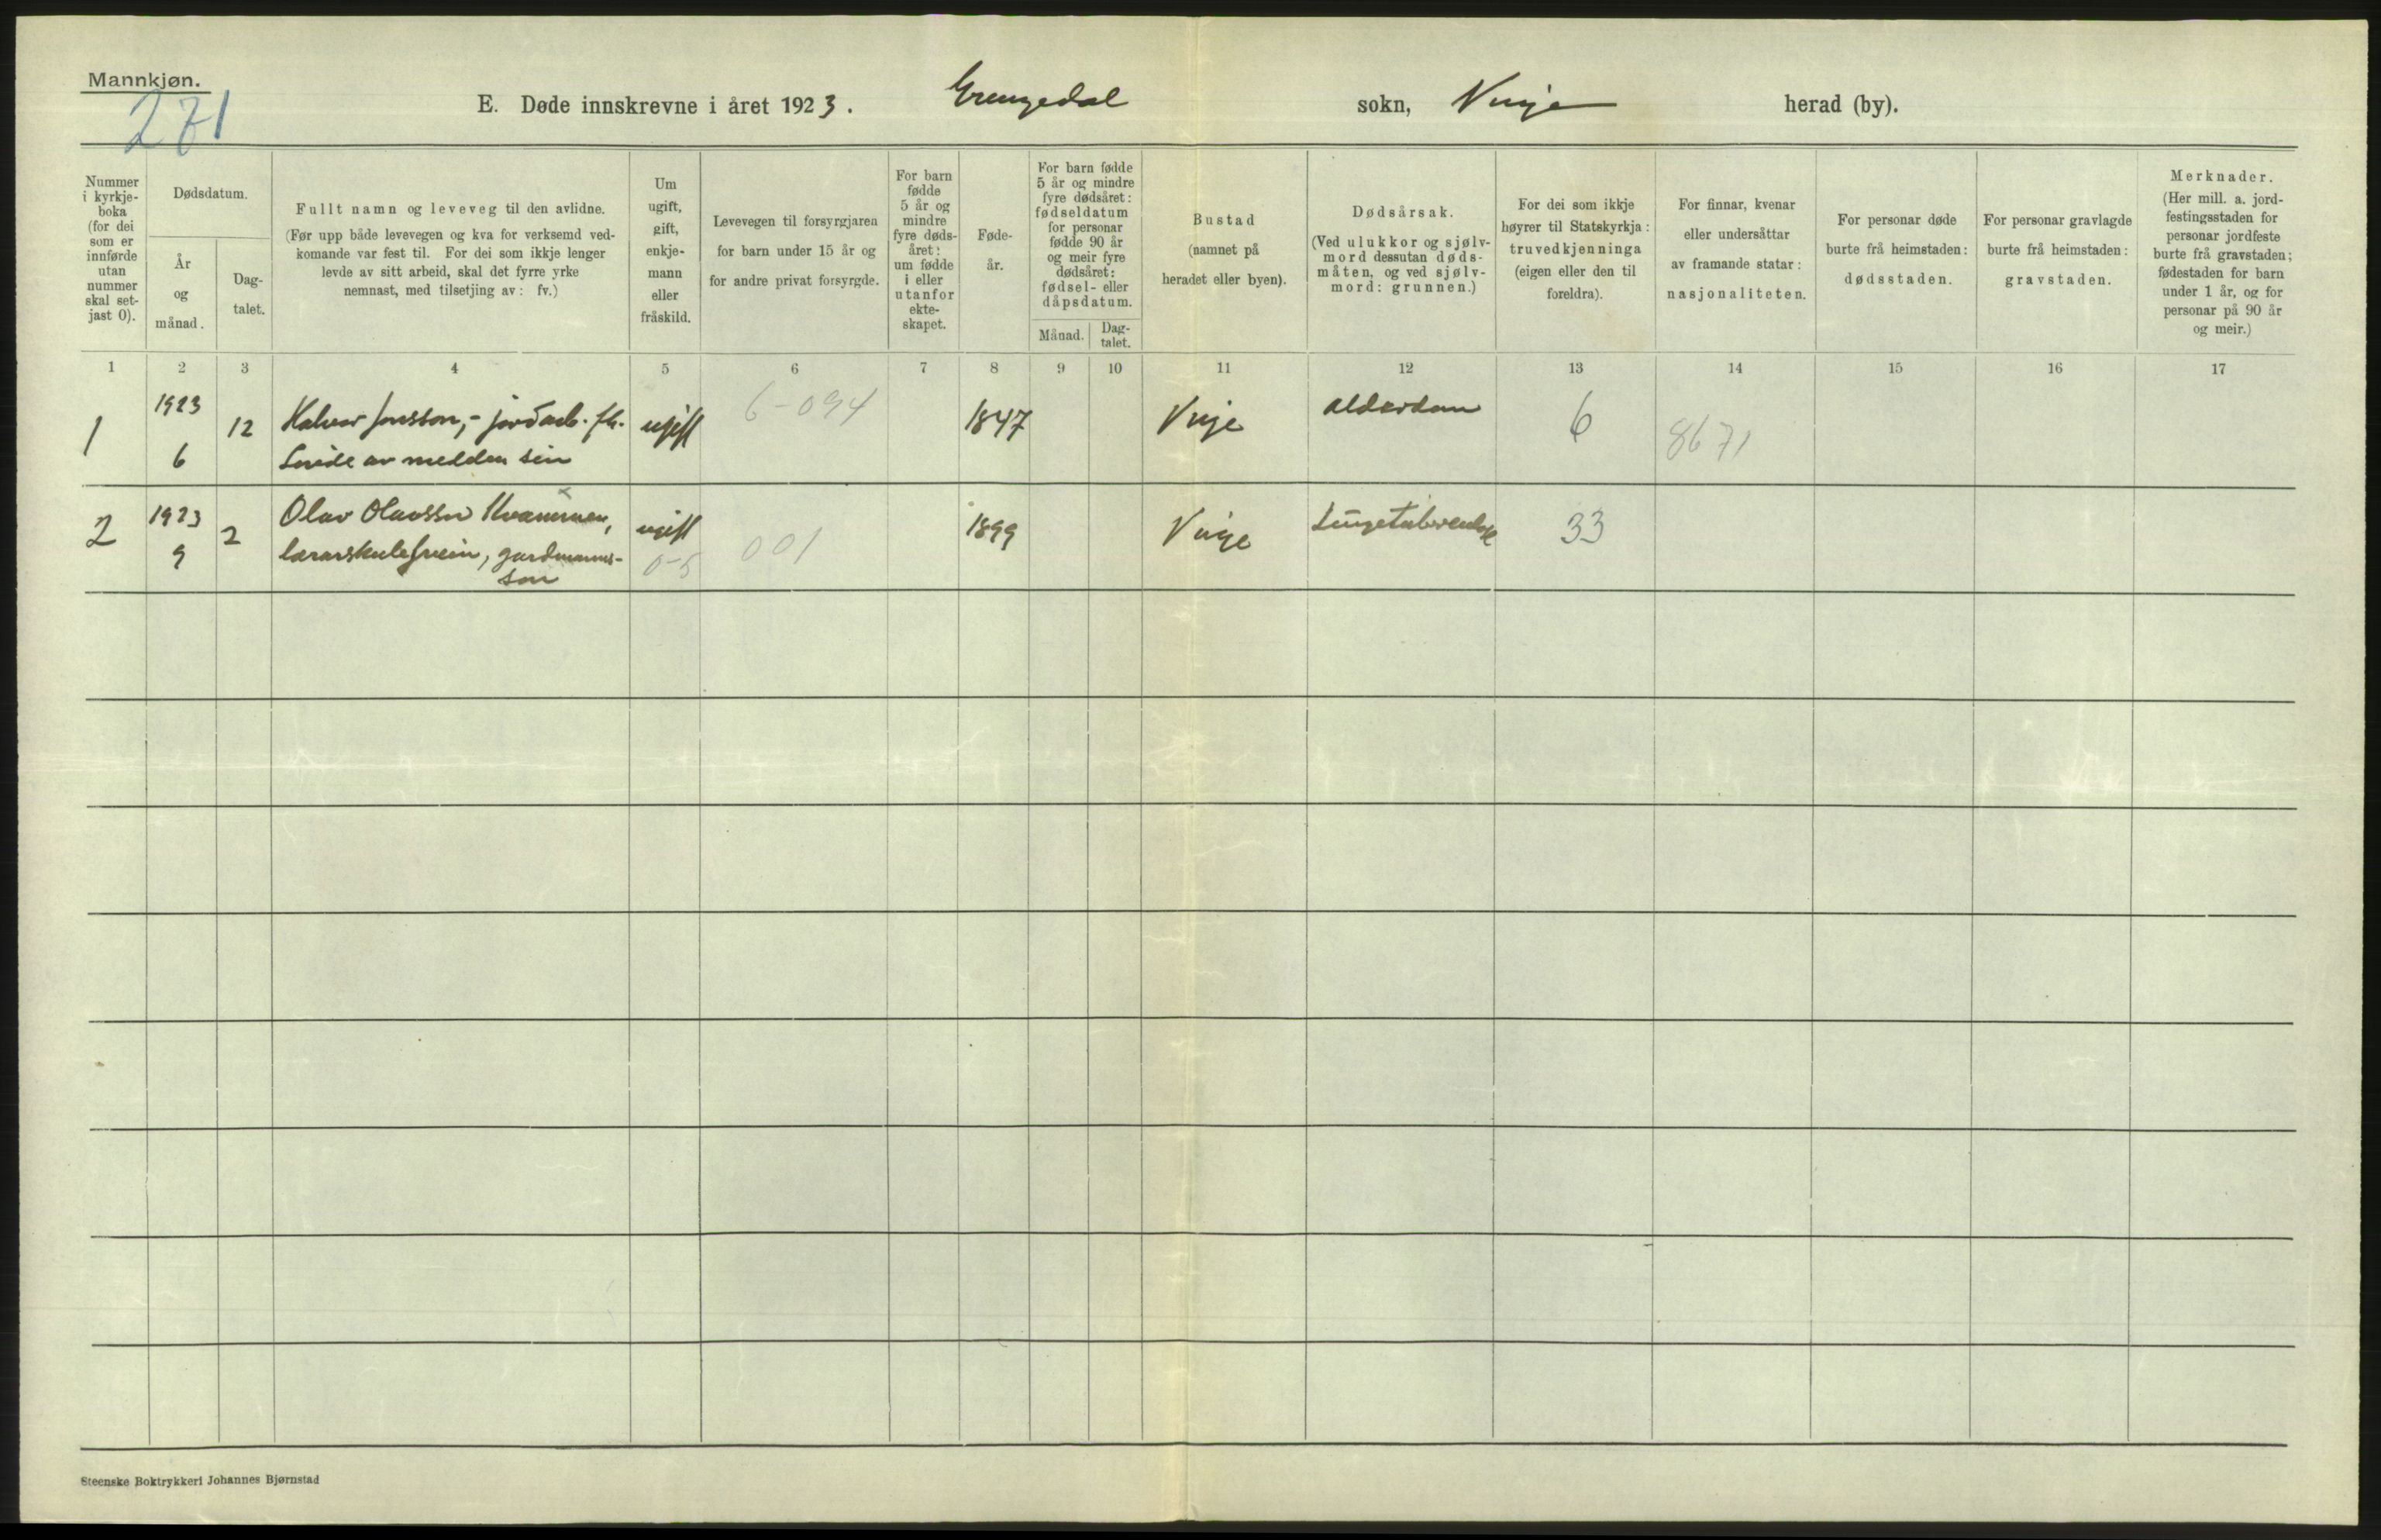 Mannkjøn.
271
E. Døde innskrevne i året 1923. Grungedal sokn, Vinje herad (by).
Nummer i kyrkje-boka (for dei som er innførde utan nummer skal set-jast 0).
Dødsdatum.
År og månad.
Dag-talet.
Fullt namn og leveveg til den avlidne.
(Før upp både levevegen og kva for verksemd ved-
komande var fest til. For dei som ikkje lenger
levde av sitt arbeid, skal det fyrre yrke
nemnast, med tilsetjing av: fv.)
Um ugift, gift, enkje-mann eller fråskild.
Levevegen til forsyrgjaren
for barn under 15 år og
for andre privat forsyrgde.
For barn fødde 5 år og mindre fyre døds-året: um fødde i eller utanfor ekte-skapet.
Føde-år.
For barn fødde 5 år og mindre fyre dødsåret: fødseldatum for personar fødde 90 år og meir fyre dødsåret: fødsel- eller dåpsdatum.
Månad.
Dag-talet.
Bustad
(namnet på
heradet eller byen).
Dødsårsak.
(Ved ulukkor og sjølv-
mord dessutan døds-
måten, og ved sjølv-
mord: grunnen.)
For dei som ikkje
høyrer til Statskyrkja:
truvedkjenninga
(eigen eller den til
foreldra).
For finnar, kvenar
eller undersåttar
av framande statar:
nasjonaliteten.
For personar døde
burte frå heimstaden:
dødsstaden.
For personar gravlagde
burte frå heimstaden:
gravstaden.
Merknader.
(Her mill. a. jord-
festingsstaden for
personar jordfeste
burte frå gravstaden;
fødestaden for barn
under 1 år, og for
personar på 90 år
og meir.)
1 2 3 4 5 6 7 8 9 10 11 12 13 14 15 16 17
1 1923 6 12 Halvor Jonsson, - jordarb. fv. ugift 6-094 1847 Vinje alderdom 6 8671
av medden sin
2 1923 9 2 Olav Olavsson Kvammen, ugift 001 1899 Vinje Lungetuberculose 33
lærarskulesvein, gardmanns- 0-5
son
Steenske Boktrykkeri Johannes Bjørnstad